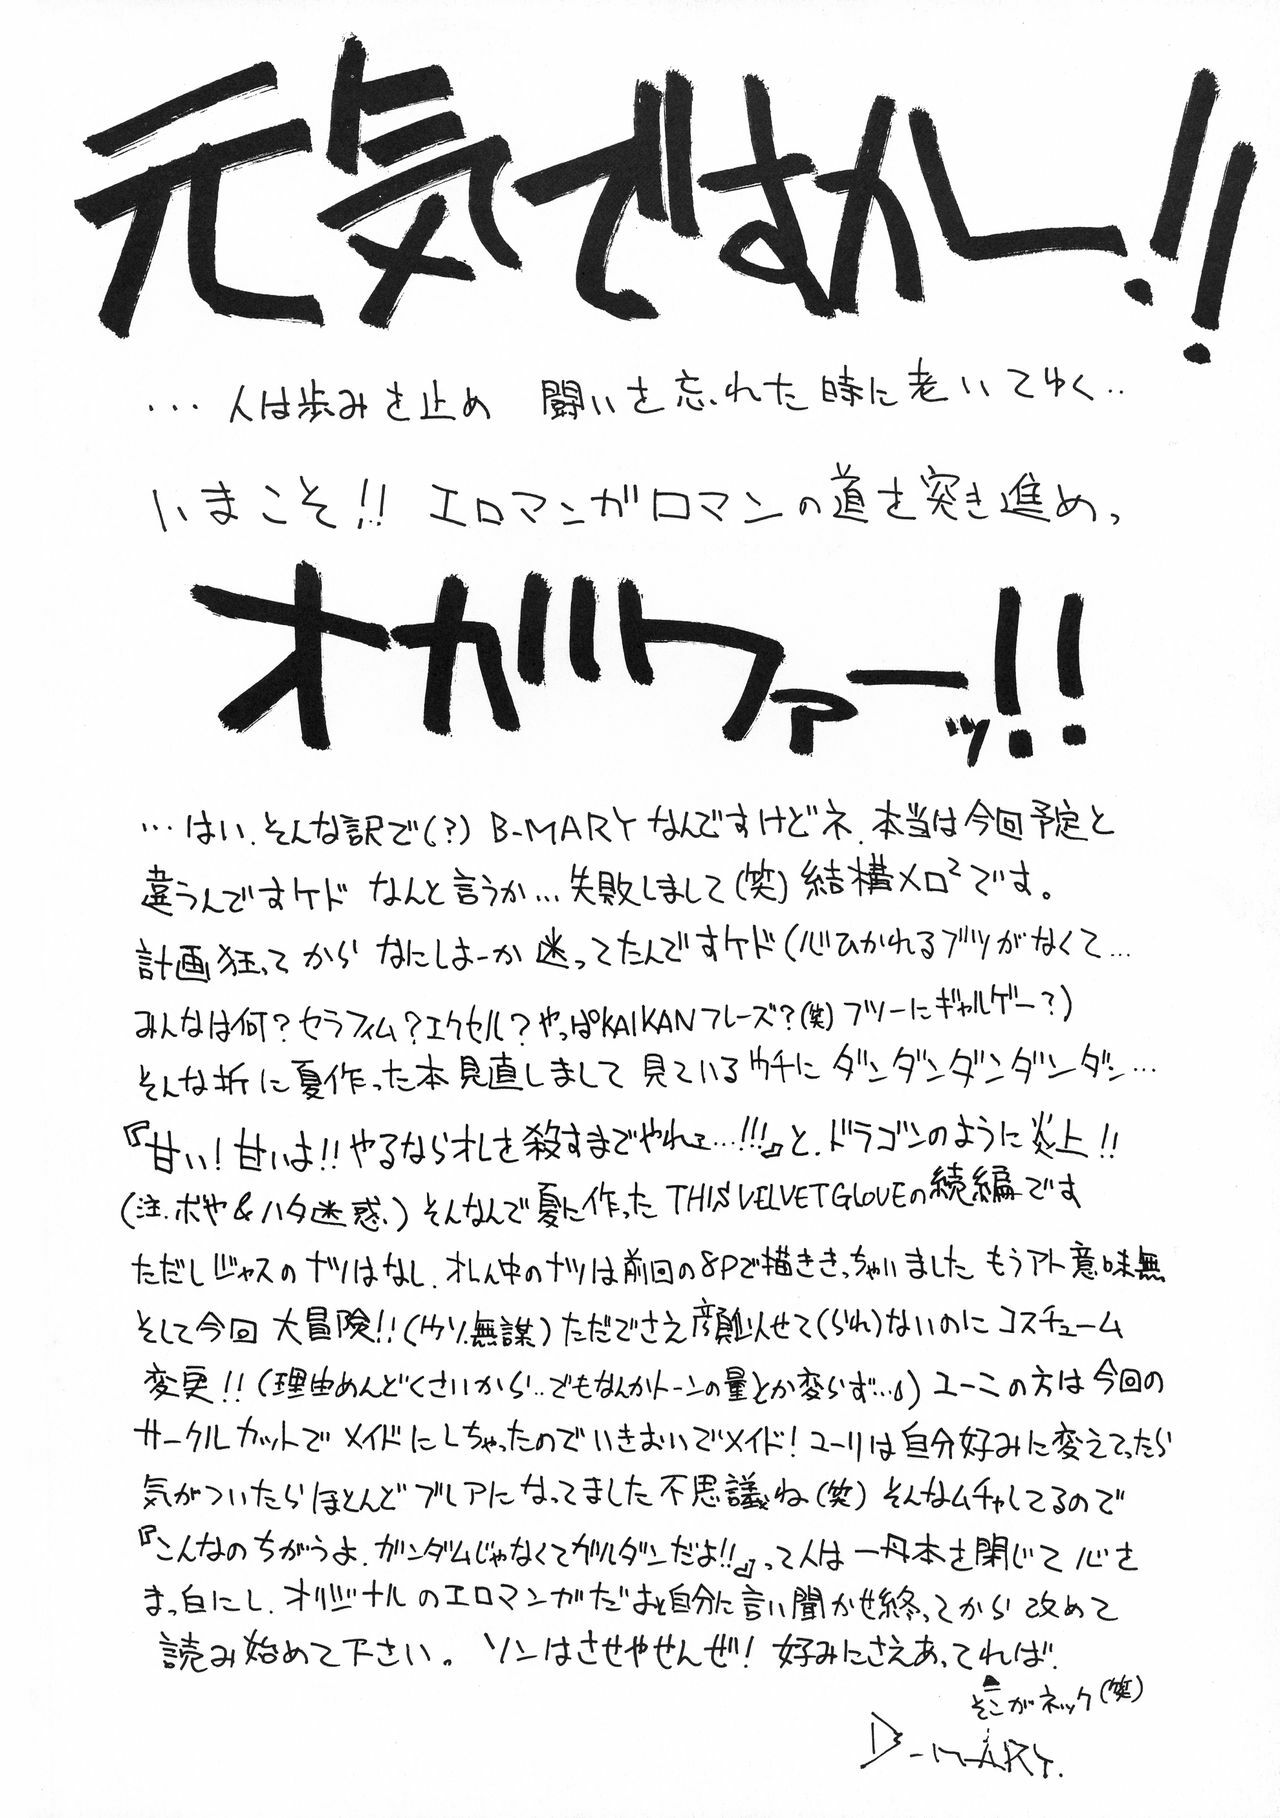 元気ですかー!!
･･･人は歩みを止め 闘いを忘れた時に老いてゆく･･
いまこそ!! エロマンガロマンの道を突き進めっ
オガワァーッ!!
…はい.そんな訳で(?) B-MARYなんですけどネ.本当は今回予定と
違うんですケド なんと言うか…失敗しまして(笑)結構メロ²です。
計画狂ってから なにしよーか迷ってたんですケド(心ひかれるブツがなくて…
みんなは何?セラフィム?エクセル?やっぱKAIKANフレーズ?(笑)フツーにギャルゲー?)
そんな折に夏作った本見直しまして見ているウチにダンダンダンダンダン…
『甘い!甘いよ!!やるならオレを殺すまでやれェ…!!!』と.ドラゴンのように炎上!!
(注.ボヤ&ハタ迷惑.)そんなんで夏に作ったTHIS VELVET GLOVEの続編です
ただしジャスのナツはなし.オレん中のナツは前回の8Pで描ききっちゃいました もうアト意味無
そして今回 大冒険!!(ウソ.無謀)ただでさえ顔似せて(られ)ないのにコスチューム
変更!!(理由めんどくさいから‥でもなんかトーンの量とか変らず…)ユーこの方は今回の
サークルカットでメイドにしちゃったのでいきおいでメイド!ユーリは自分好みに変えてったら
気がついたらほとんどブレアになってました不思議ね(笑)そんなムチャしてるので
『こんなのちがうよ.ガンダムじゃなくてガルダンだよ!!』って人は一旦本を閉じて心を
まっ白にし.オリジナルのエロマンガだよと自分に言い聞かせ終ってから改めて
読み始めて下さい。 ソンはさせやせんぜ!好みにさえあってれば.
そこがネック(笑)
B-MARY.